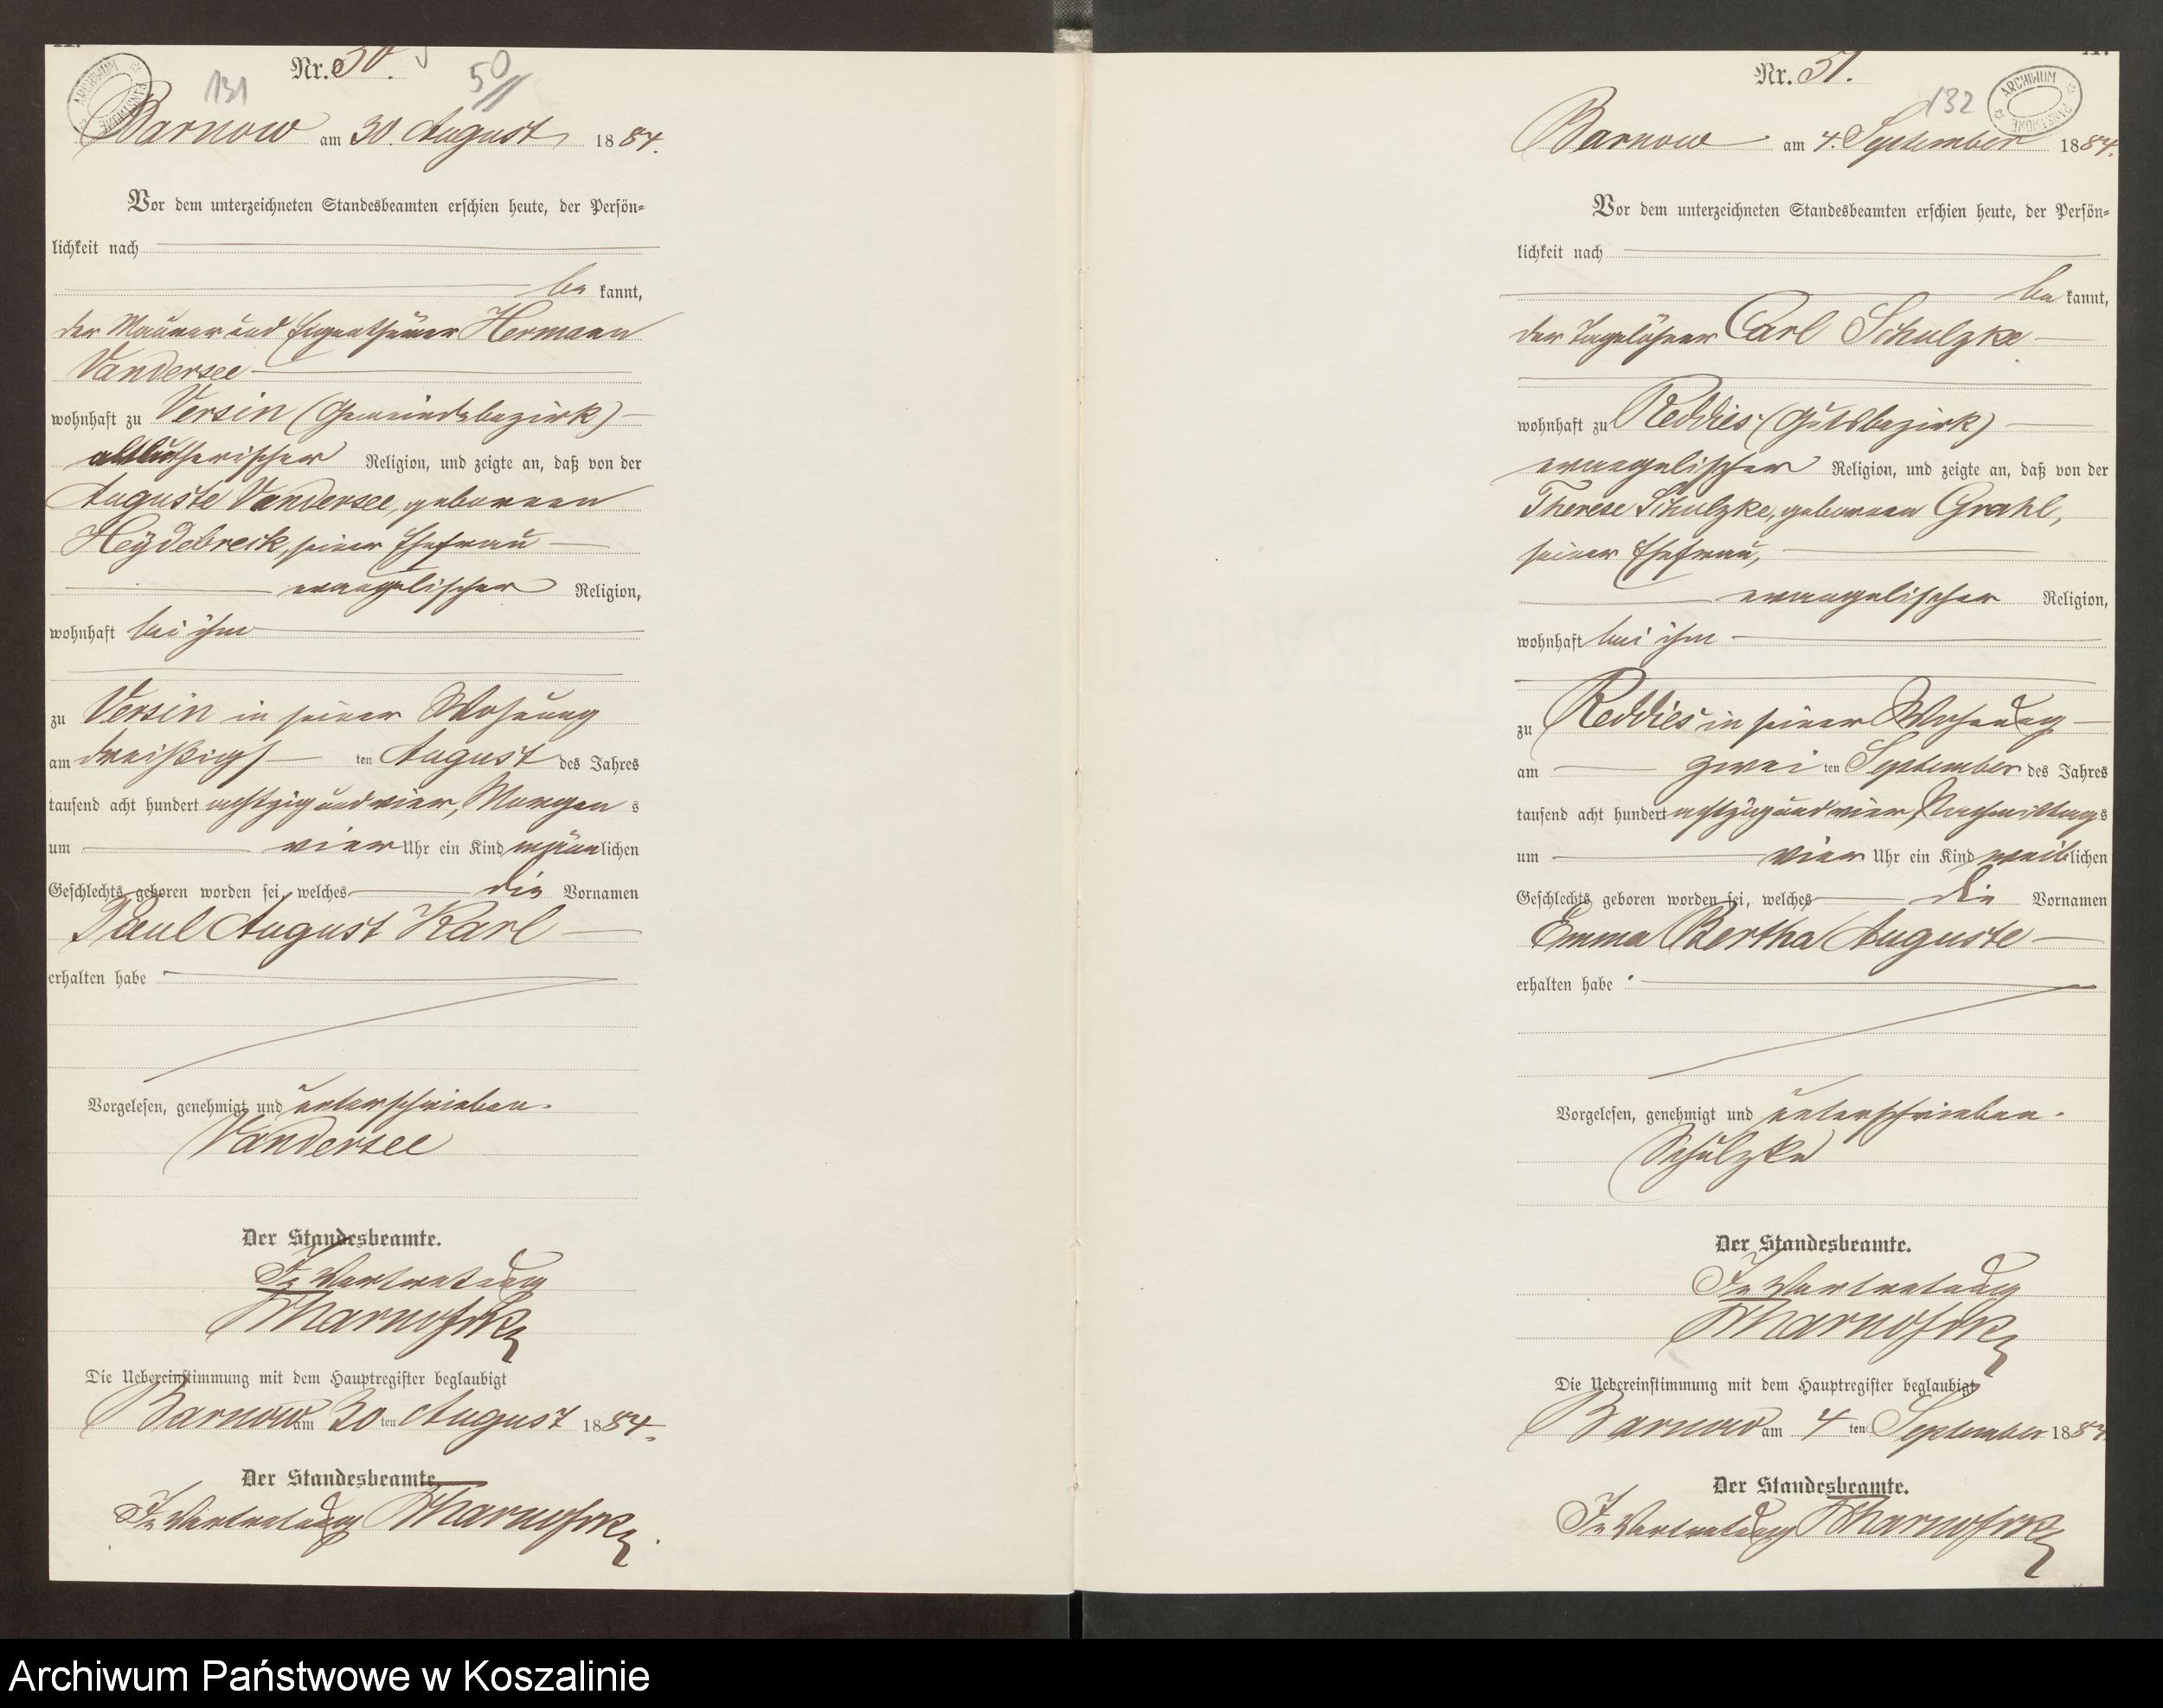 131
Nr. 50.
50
ARCHIWUM PAŃSTWOWE
Barnow am 30. August 1884.
Vor dem unterzeichneten Standesbeamten erschien heute, der Persön-
lichkeit nach
be kannt,
der Maurer und Eigenthümer Hermann
Vandersee
wohnhaft zu Versin (Gemeindebezirk)
altlutherischer Religion, und zeigte an, daß von der
Auguste Vandersee, geborenen
Heydebreck, seiner Ehefrau
evangelischer Religion,
wohnhaft bei ihm
zu Versin in seiner Wohnung
am dreißigs ten August des Jahres
tausend acht hundert achtzig und vier, Morgen s
um vier Uhr ein Kind männlichen
Geschlechts geboren worden sei, welches die Vornamen
Paul August Karl
erhalten habe
Vorgelesen, genehmigt und unterschrieben.
Vandersee
Der Standesbeamte.
In Vertretung
Die Uebereinstimmung mit dem Hauptregister beglaubigt
Barnow am 30 ten August 1884.
Der Standesbeamte
In Vertretung
Nr. 51.
132
ARCHIWUM PAŃSTWOWE
Barnow am 4. September 1884.
Vor dem unterzeichneten Standesbeamten erschien heute, der Persön-
lichkeit nach
be kannt,
der Tagelöhner Carl Schulzke
wohnhaft zu Reddies (Gutsbezirk)
evangelischer Religion, und zeigte an, daß von der
Therese Schulzke, geborenen Grahl,
seiner Ehefrau,
evangelischer Religion,
wohnhaft bei ihm
zu Reddies in seiner Wohnung
am zwei ten September des Jahres
tausend acht hundert achtzig und vier, Nachmittags
um vier Uhr ein Kind weiblichen
Geschlechts geboren worden sei, welches die Vornamen
Emma Bertha Auguste
erhalten habe
Vorgelesen, genehmigt und unterschrieben.
Schulzke
Der Standesbeamte.
In Vertretung
Die Uebereinstimmung mit dem Hauptregister beglaubigt
Barnow am 4 ten September 1884.
Der Standesbeamte.
In Vertretung
Archiwum Państwowe w Koszalinie